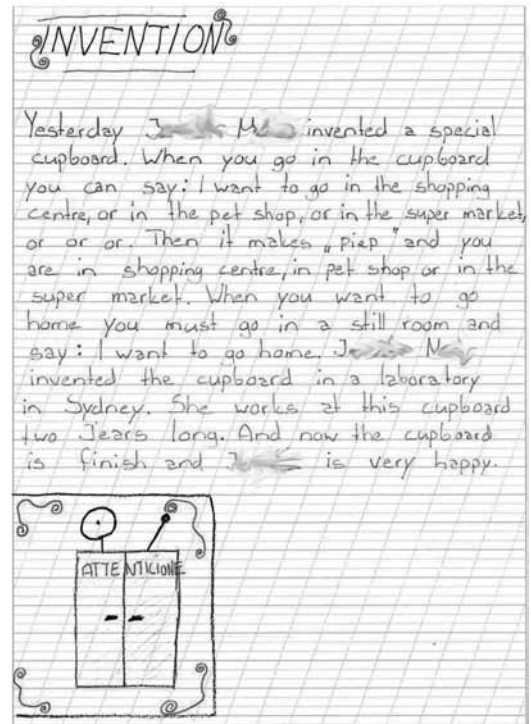 INVENTION
Yesterday J M invented a special
cupboard. When you go in the cupboard
you can say: I want to go in the shopping
centre, or in the pet shop, or in the super market,
or or or. Then it makes „piep" and you
are in shopping centre, in pet shop or in the
super market. When you want to go
home you must go in a still room and
say: I want to go home. J M
invented the cupboard in a laboratory
in Sydney. She works at this cupboard
two Jears long. And now the cupboard
is finish and J is very happy.
ATTENTICIONE